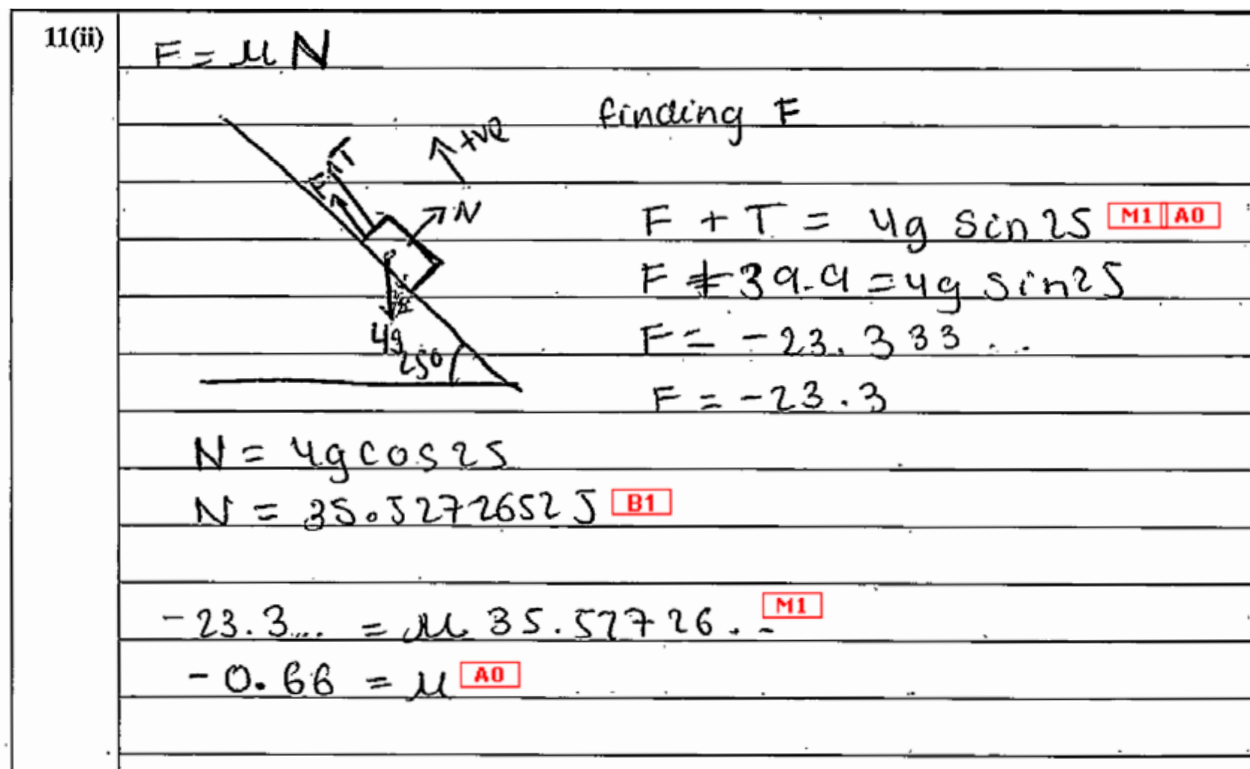 11(ii)
F = μN
finding F
+ve
F T
N
F + T = 4g sin 25 M1 A0
4g
25°
F + 39.9 = 4g sin 25
F = -23.333...
F = -23.3
N = 4g cos 25
N = 35.52726525 B1
-23.3... = μ 35.52726.. M1
-0.66 = μ A0